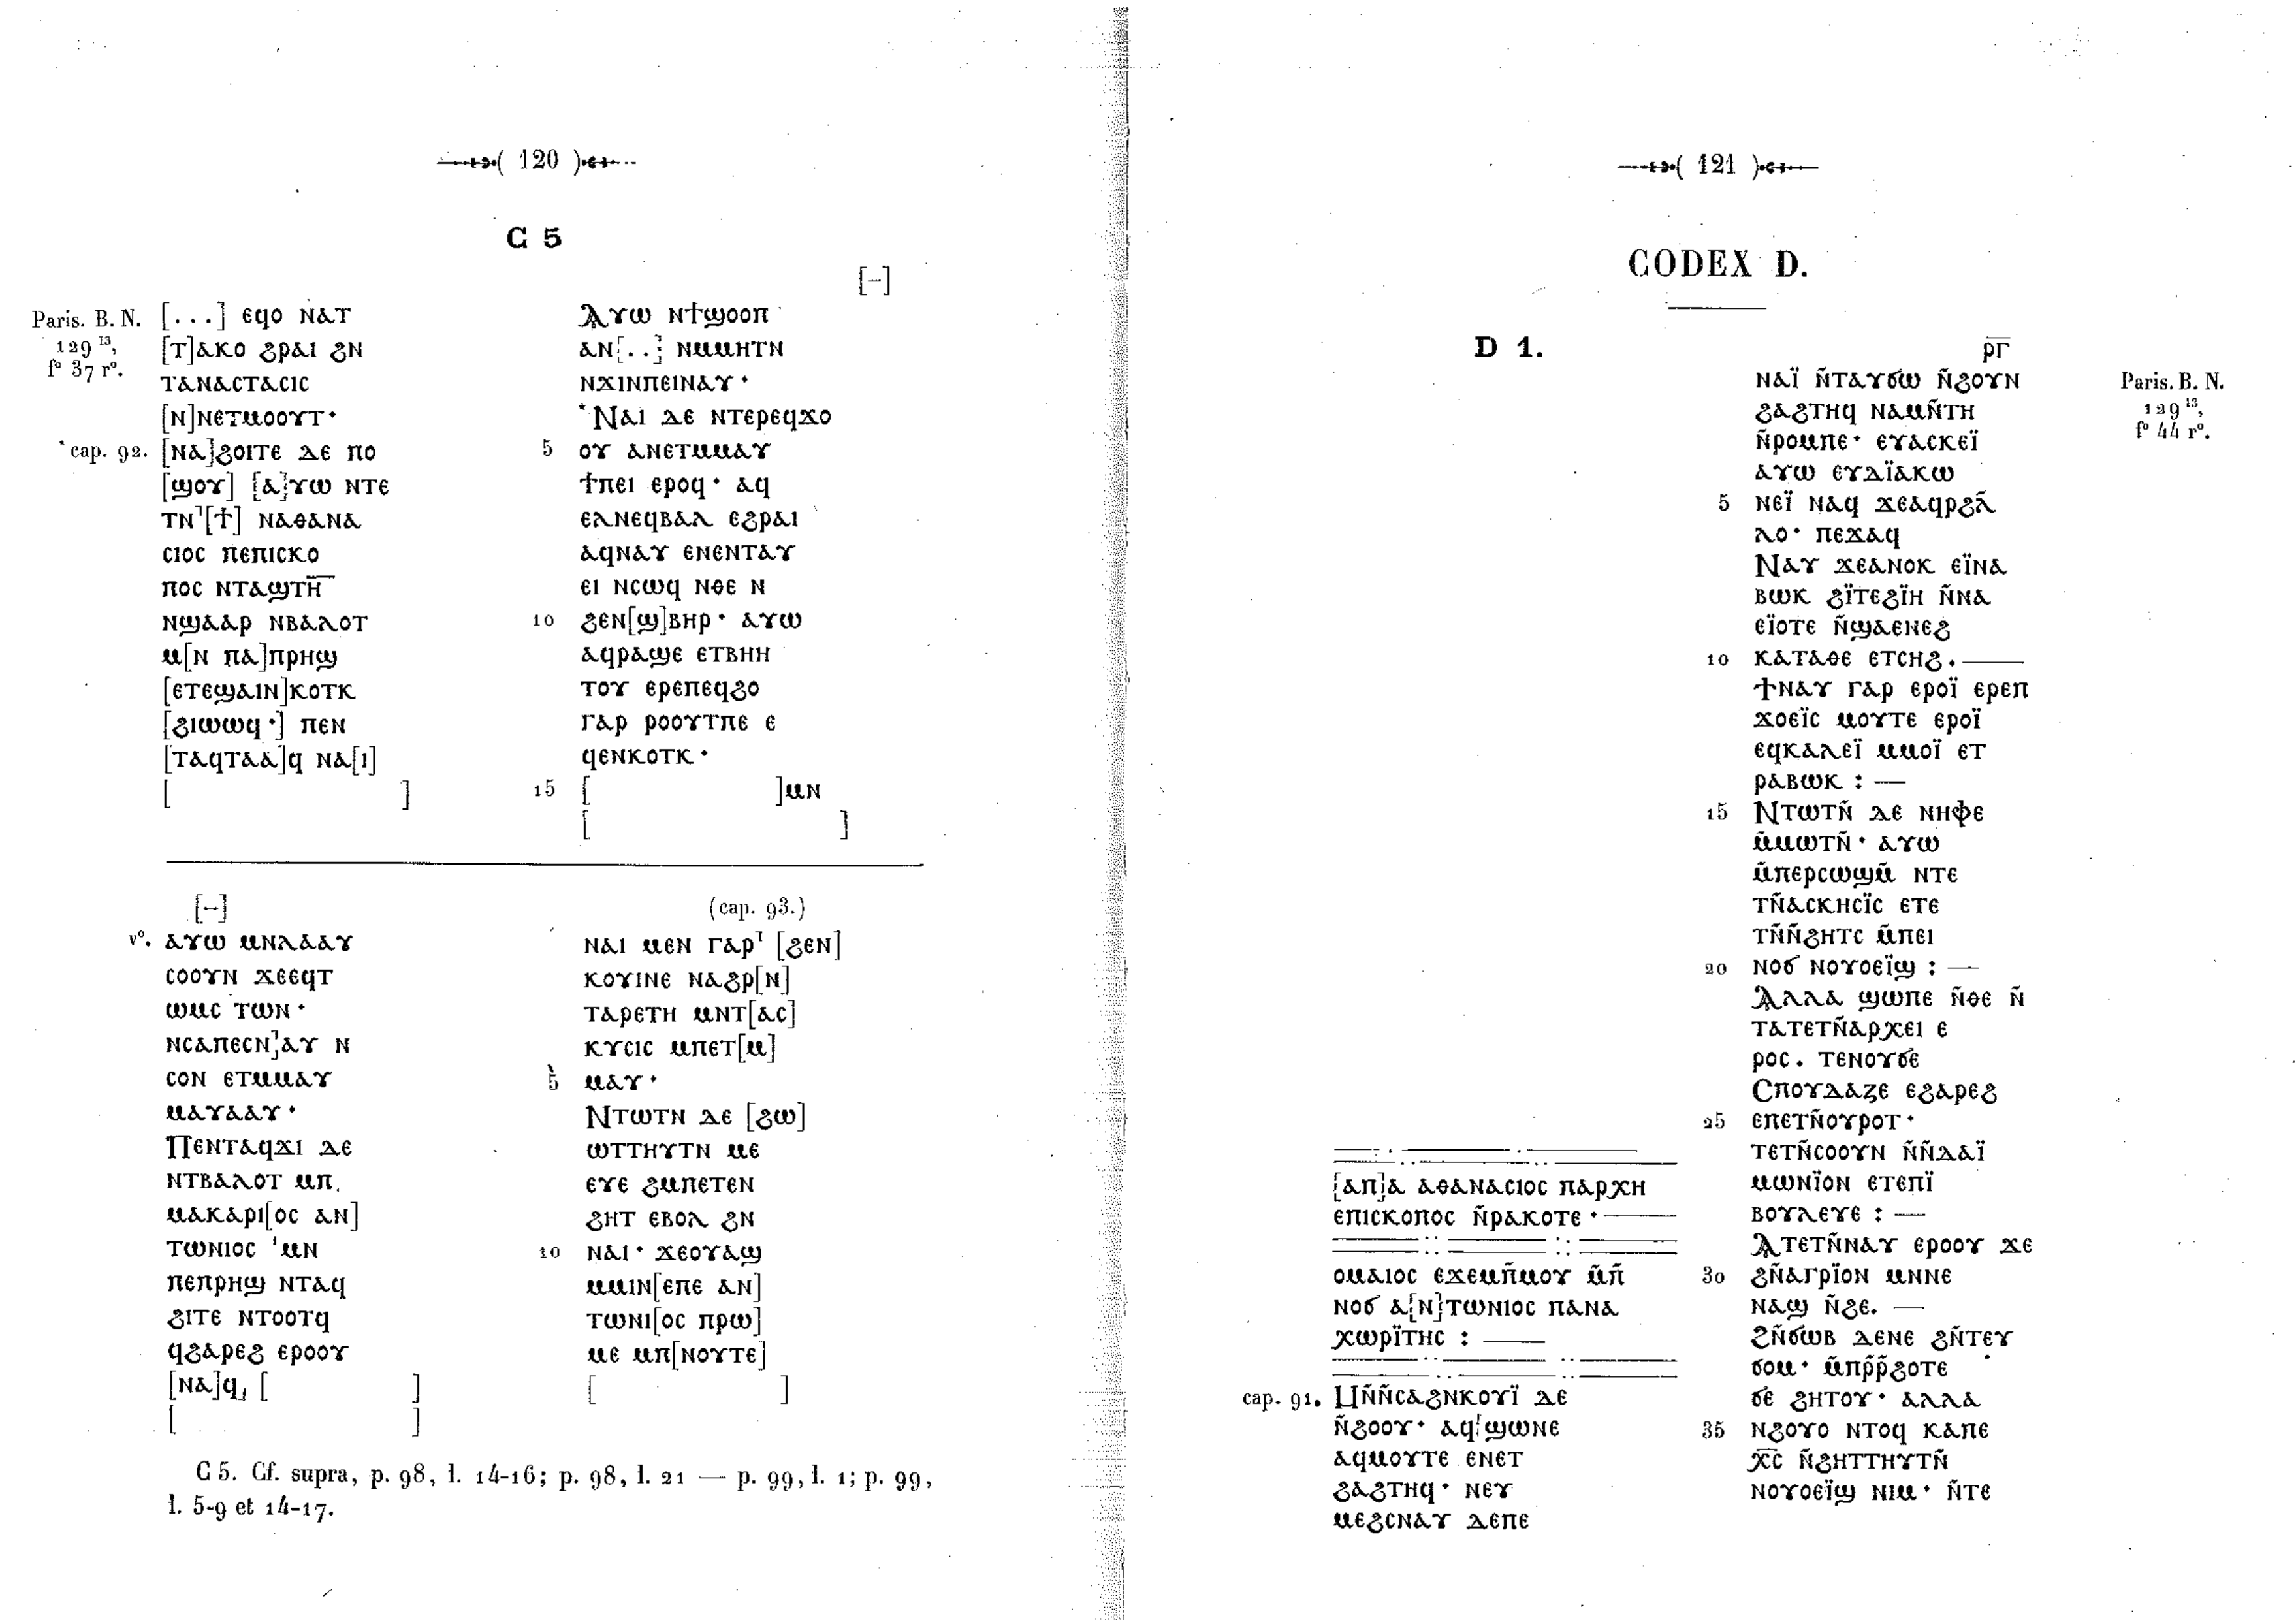 ( 120 )
C 5
[–]
Paris. B. N.
129 ¹³,
fº 37 rº.
[...] ⲉϥⲟ ⲛⲁⲧ
[ⲧ]ⲁⲕⲟ ϩⲣⲁⲓ ϩⲛ
ⲧⲁⲛⲁⲥⲧⲁⲥⲓⲥ
[ⲛ]ⲛⲉⲧⲙⲟⲟⲩⲧ·
*cap. 92. [ⲛⲁ]ϩⲟⲓⲧⲉ ⲇⲉ ⲡⲟ
[ϣⲟⲩ] [ⲁ]ⲩⲱ ⲛⲧⲉ
ⲧⲛ[ϯ] ⲛⲁⲑⲁⲛⲁ
ⲥⲓⲟⲥ ⲡⲉⲡⲓⲥⲕⲟ
ⲡⲟⲥ ⲛⲧⲁϣⲧⲏ̅
ⲛϣⲁⲁⲣ ⲛⲃⲁⲗⲟⲧ
ⲙ[ⲛ ⲡⲁ]ⲡⲣⲏϣ
[ⲉⲧⲉϣⲁⲓⲛ]ⲕⲟⲧⲕ
[ϩⲓⲱⲱϥ·] ⲡⲉⲛ
[ⲧⲁϥⲧⲁⲁ]ϥ ⲛⲁ[ⲓ]
[ ]
Ⲁⲩⲱ ⲛϯϣⲟⲟⲡ
ⲁⲛ[..] ⲛⲙⲙⲏⲧⲛ
ⲛϫⲓⲛⲡⲉⲓⲛⲁⲩ·
*Ⲛⲁⲓ ⲇⲉ ⲛⲧⲉⲣⲉϥϫⲟ
5 ⲟⲩ ⲁⲛⲉⲧⲙⲙⲁⲩ
ϯⲡⲉⲓ ⲉⲣⲟϥ· ⲁϥ
ⲉⲗⲛⲉϥⲃⲁⲗ ⲉϩⲣⲁⲓ
ⲁϥⲛⲁⲩ ⲉⲛⲉⲛⲧⲁⲩ
ⲉⲓ ⲛⲥⲱϥ ⲛⲑⲉ ⲛ
10 ϩⲉⲛ[ϣ]ⲃⲏⲣ· ⲁⲩⲱ
ⲁϥⲣⲁϣⲉ ⲉⲧⲃⲏⲏ
ⲧⲟⲩ ⲉⲣⲉⲡⲉϥϩⲟ
ⲅⲁⲣ ⲣⲟⲟⲩⲧⲡⲉ ⲉ
ϥⲉⲛⲕⲟⲧⲕ·
15 [ ]ⲙⲛ
[ ]
[–]
vº. ⲁⲩⲱ ⲙⲛⲗⲁⲁⲩ
ⲥⲟⲟⲩⲛ ϫⲉⲉϥⲧ
ⲱⲙⲥ ⲧⲱⲛ·
ⲛⲥⲁⲡⲉⲥⲛ]ⲁⲩ ⲛ
ⲥⲟⲛ ⲉⲧⲙⲙⲁⲩ
ⲙⲁⲩⲁⲁⲩ·
Ⲡⲉⲛⲧⲁϥϫⲓ ⲇⲉ
ⲛⲧⲃⲁⲗⲟⲧ ⲙⲡ
ⲙⲁⲕⲁⲣⲓ[ⲟⲥ ⲁⲛ]
ⲧⲱⲛⲓⲟⲥ ⲙⲛ
ⲡⲉⲡⲣⲏϣ ⲛⲧⲁϥ
ϩⲓⲧⲉ ⲛⲧⲟⲟⲧϥ
ϥϩⲁⲣⲉϩ ⲉⲣⲟⲟⲩ
[ⲛⲁ]ϥ, [ ]
[ ]
(cap. 93.)
ⲛⲁⲓ ⲙⲉⲛ ⲅⲁⲣ [ϩⲉⲛ]
ⲕⲟⲩⲓⲛⲉ ⲛⲁϩⲣ[ⲛ]
ⲧⲁⲣⲉⲧⲏ ⲙⲛⲧ[ⲁⲥ]
ⲕⲩⲥⲓⲥ ⲙⲡⲉⲧ[ⲙ]
5 ⲙⲁⲩ·
Ⲛⲧⲱⲧⲛ ⲇⲉ [ϩⲱ]
ⲱⲧⲧⲏⲩⲧⲛ ⲙⲉ
ⲉⲩⲉ ϩⲙⲡⲉⲧⲉⲛ
ϩⲏⲧ ⲉⲃⲟⲗ ϩⲛ
10 ⲛⲁⲓ· ϫⲉⲟⲩⲁϣ
ⲙⲙⲓⲛ[ⲉⲡⲉ ⲁⲛ]
ⲧⲱⲛⲓ[ⲟⲥ ⲡⲣⲱ]
ⲙⲉ ⲙⲡ[ⲛⲟⲩⲧⲉ]
[ ]
C 5. Cf. supra, p. 98, l. 14-16; p. 98, l. 21 — p. 99, l. 1; p. 99,
l. 5-9 et 14-17.
( 121 )
CODEX D.
D 1.
[ⲁⲡ]ⲁ ⲁⲑⲁⲛⲁⲥⲓⲟⲥ ⲡⲁⲣⲭⲏ
ⲉⲡⲓⲥⲕⲟⲡⲟⲥ ⲛ̄ⲣⲁⲕⲟⲧⲉ·——
ⲟⲙⲁⲓⲟⲥ ⲉϫⲉⲙⲡ̄ⲙⲟⲩ ⲙ̄ⲡ̄
ⲛⲟϭ ⲁ[ⲛ]ⲧⲱⲛⲓⲟⲥ ⲡⲁⲛⲁ
ⲭⲱⲣⲓ̈ⲧⲏⲥ : ——
cap. 91. Ⲙⲛ̄ⲛ̄ⲥⲁϩⲛⲕⲟⲩⲓ̈ ⲇⲉ
ⲛ̄ϩⲟⲟⲩ· ⲁϥϣⲱⲛⲉ
ⲁϥⲙⲟⲩⲧⲉ ⲉⲛⲉⲧ
ϩⲁϩⲧⲏϥ· ⲛⲉⲩ
ⲙⲉϩⲥⲛⲁⲩ ⲇⲉⲡⲉ
ⲣ̅ⲅ̅
Paris. B. N.
129 ¹³,
fº 44 rº.
ⲛⲁⲓ̈ ⲛ̄ⲧⲁⲩϭⲱ ⲛ̄ϩⲟⲩⲛ
ϩⲁϩⲧⲏϥ ⲛⲁⲙⲛ̄ⲧⲏ
ⲛ̄ⲣⲟⲙⲡⲉ· ⲉⲩⲁⲥⲕⲉⲓ̈
ⲁⲩⲱ ⲉⲩⲇⲓ̈ⲁⲕⲱ
5 ⲛⲉⲓ̈ ⲛⲁϥ ϫⲉⲁϥⲣϩⲗ̄
ⲗⲟ· ⲡⲉϫⲁϥ
Ⲛⲁⲩ ϫⲉⲁⲛⲟⲕ ⲉⲓ̈ⲛⲁ
ⲃⲱⲕ ϩⲓ̈ⲧⲉϩⲓ̈ⲏ ⲛ̄ⲛⲁ
ⲉⲓ̈ⲟⲧⲉ ⲛ̄ϣⲁⲉⲛⲉϩ
10 ⲕⲁⲧⲁⲑⲉ ⲉⲧⲥⲏϩ.——
ϯⲛⲁⲩ ⲅⲁⲣ ⲉⲣⲟⲓ̈ ⲉⲣⲉⲡ
ϫⲟⲉⲓ̈ⲥ ⲙⲟⲩⲧⲉ ⲉⲣⲟⲓ̈
ⲉϥⲕⲁⲗⲉⲓ̈ ⲙⲙⲟⲓ̈ ⲉⲧ
ⲣⲁⲃⲱⲕ : —
15 Ⲛⲧⲱⲧⲛ̄ ⲇⲉ ⲛⲏⲫⲉ
ⲙ̄ⲙⲱⲧⲛ̄· ⲁⲩⲱ
ⲙ̄ⲡⲉⲣⲥⲱϣⲙ̄ ⲛⲧⲉ
ⲧⲛ̄ⲁⲥⲕⲏⲥⲓ̈ⲥ ⲉⲧⲉ
ⲧⲛ̄ⲛ̄ϩⲏⲧⲥ ⲙ̄ⲡⲉⲓ
20 ⲛⲟϭ ⲛⲟⲩⲟⲉⲓ̈ϣ : —
Ⲁⲗⲗⲁ ϣⲱⲡⲉ ⲛ̄ⲑⲉ ⲛ̄
ⲧⲁⲧⲉⲧⲛ̄ⲁⲣⲭⲉⲓ ⲉ
ⲣⲟⲥ. ⲧⲉⲛⲟⲩϭⲉ
Ⲥⲡⲟⲩⲇⲁⲍⲉ ⲉϩⲁⲣⲉϩ
25 ⲉⲡⲉⲧⲛ̄ⲟⲩⲣⲟⲧ·
ⲧⲉⲧⲛ̄ⲥⲟⲟⲩⲛ ⲛ̄ⲛ̄ⲇⲁⲓ̈
ⲙⲱⲛⲓ̈ⲟⲛ ⲉⲧⲉⲡⲓ̈
ⲃⲟⲩⲗⲉⲩⲉ : —
Ⲁⲧⲉⲧⲛ̄ⲛⲁⲩ ⲉⲣⲟⲟⲩ ϫⲉ
30 ϩⲛ̄ⲁⲅⲣⲓ̈ⲟⲛ ⲙⲛⲛⲉ
ⲛⲁϣ ⲛ̄ϩⲉ. —
Ϩⲛ̄ϭⲱⲃ ⲇⲉⲛⲉ ϩⲛ̄ⲧⲉⲩ
ϭⲟⲙ· ⲙ̄ⲡⲣ̄ⲣ̄ϩⲟⲧⲉ
ϭⲉ ϩⲏⲧⲟⲩ· ⲁⲗⲗⲁ
35 ⲛϩⲟⲩⲟ ⲛⲧⲟϥ ⲕⲁⲡⲉ
ⲭ̅ⲥ̅ ⲛ̄ϩⲏⲧⲧⲏⲩⲧⲛ̄
ⲛⲟⲩⲟⲉⲓ̈ϣ ⲛⲓⲙ· ⲛ̄ⲧⲉ